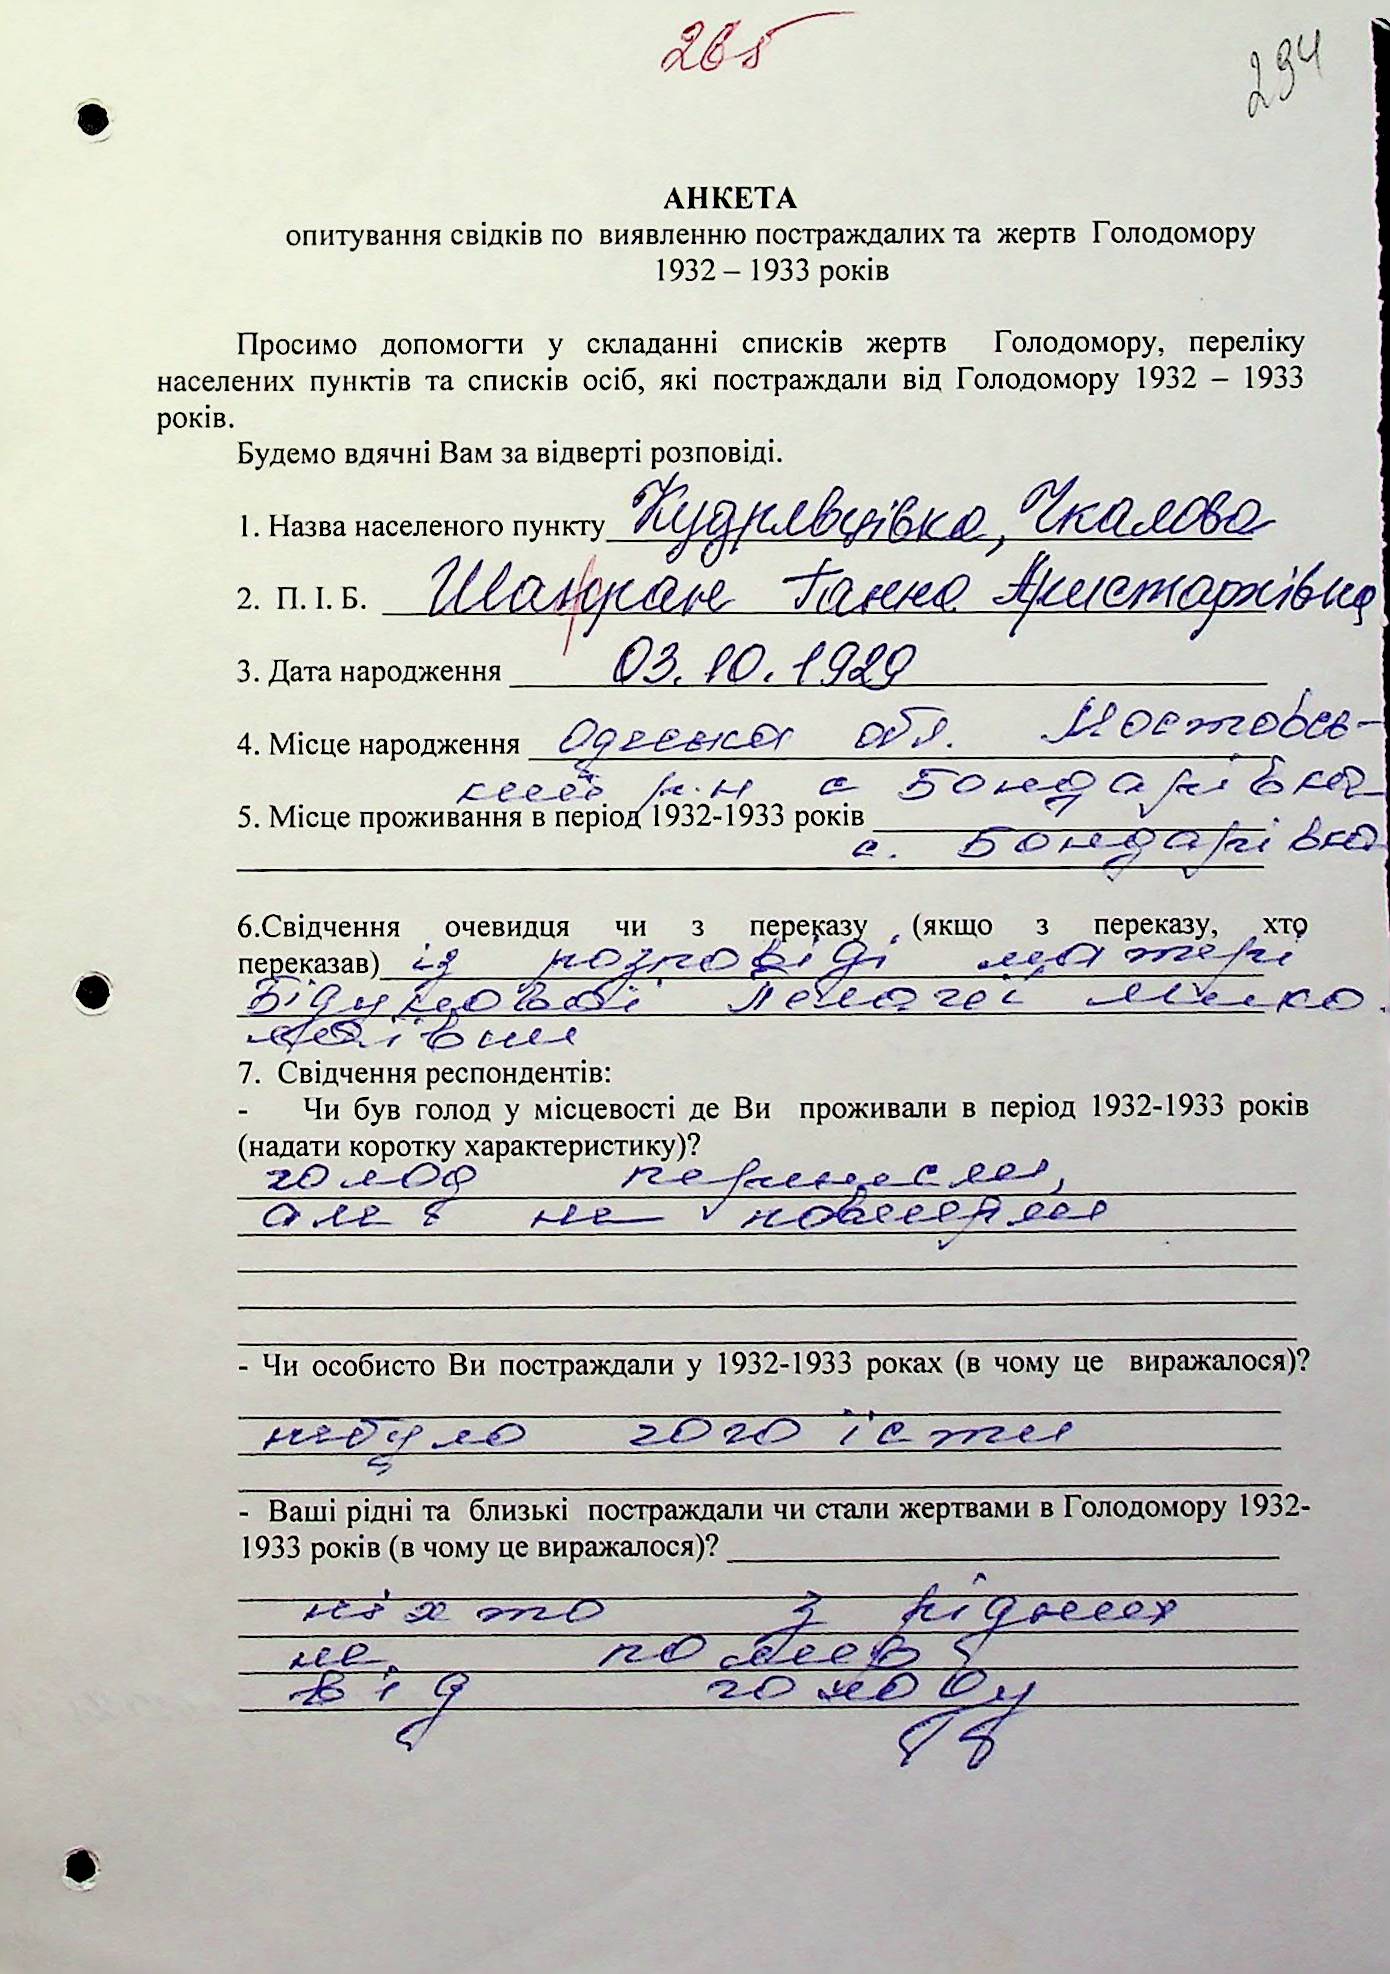 265
294
АНКЕТА
опитування свідків по виявленню постраждалих та жертв Голодомору
1932 – 1933 років
Просимо допомогти у складанні списків жертв Голодомору, переліку
населених пунктів та списків осіб, які постраждали від Голодомору 1932 – 1933
років.
Будемо вдячні Вам за відверті розповіді.
1. Назва населеного пункту Кудрявцівка, Чкалова
2. П. І. Б. Шафран Ганна Аристархівна
3. Дата народження 03.10.1929
4. Місце народження Одеська обл. Мостовсь-
кий р-н с Бондарівка
5. Місце проживання в період 1932-1933 років
с. Бондарівка
6.Свідчення очевидця чи з переказу (якщо з переказу, хто
переказав) із розповіді матері
Пелагеї Мико
лаївни
7. Свідчення респондентів:
- Чи був голод у місцевості де Ви проживали в період 1932-1933 років
(надати коротку характеристику)?
голод перенесли,
але не
- Чи особисто Ви постраждали у 1932-1933 роках (в чому це виражалося)?
небуло чого їсти
- Ваші рідні та близькі постраждали чи стали жертвами в Голодомору 1932-
1933 років (в чому це виражалося)?
ніхто з рідних
не помер
від голоду